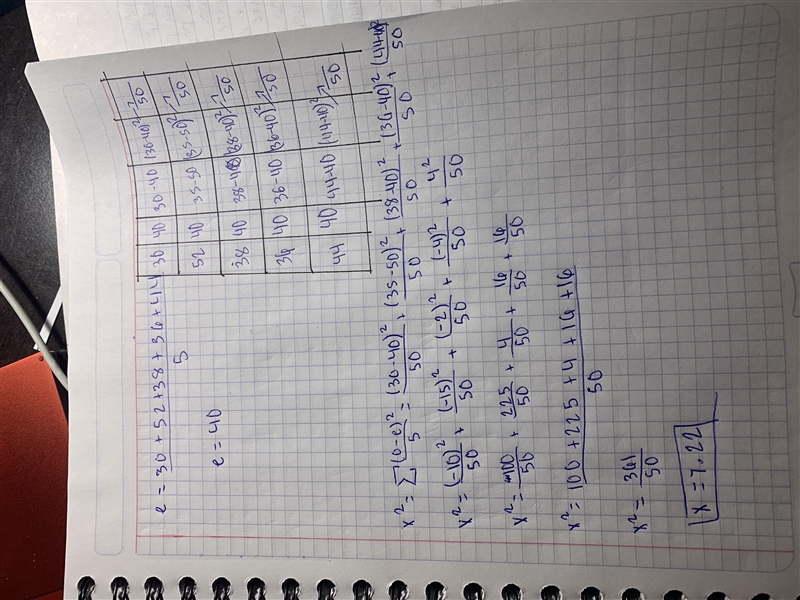 e = 30 + 52 + 38 + 36 + 44
5
e = 40
30 40 30-40 (30-40)²/50
52 40 35-50 (35-50)²/50
38 40 38-40 (38-40)²/50
36 40 36-40 (36-40)²/50
44 40 44-40 (44-40)²/50
x² = Σ (o-e)²/5 = (30-40)²/50 + (35-50)²/50 + (38-40)²/50 + (36-40)²/50 + (44-40)²/50
x² = (-10)²/50 + (-15)²/50 + (-2)²/50 + (-4)²/50 + 4²/50
x² = 100/50 + 225/50 + 4/50 + 16/50 + 16/50
x² = 100 + 225 + 4 + 16 + 16
50
x² = 361/50
x = 7.22